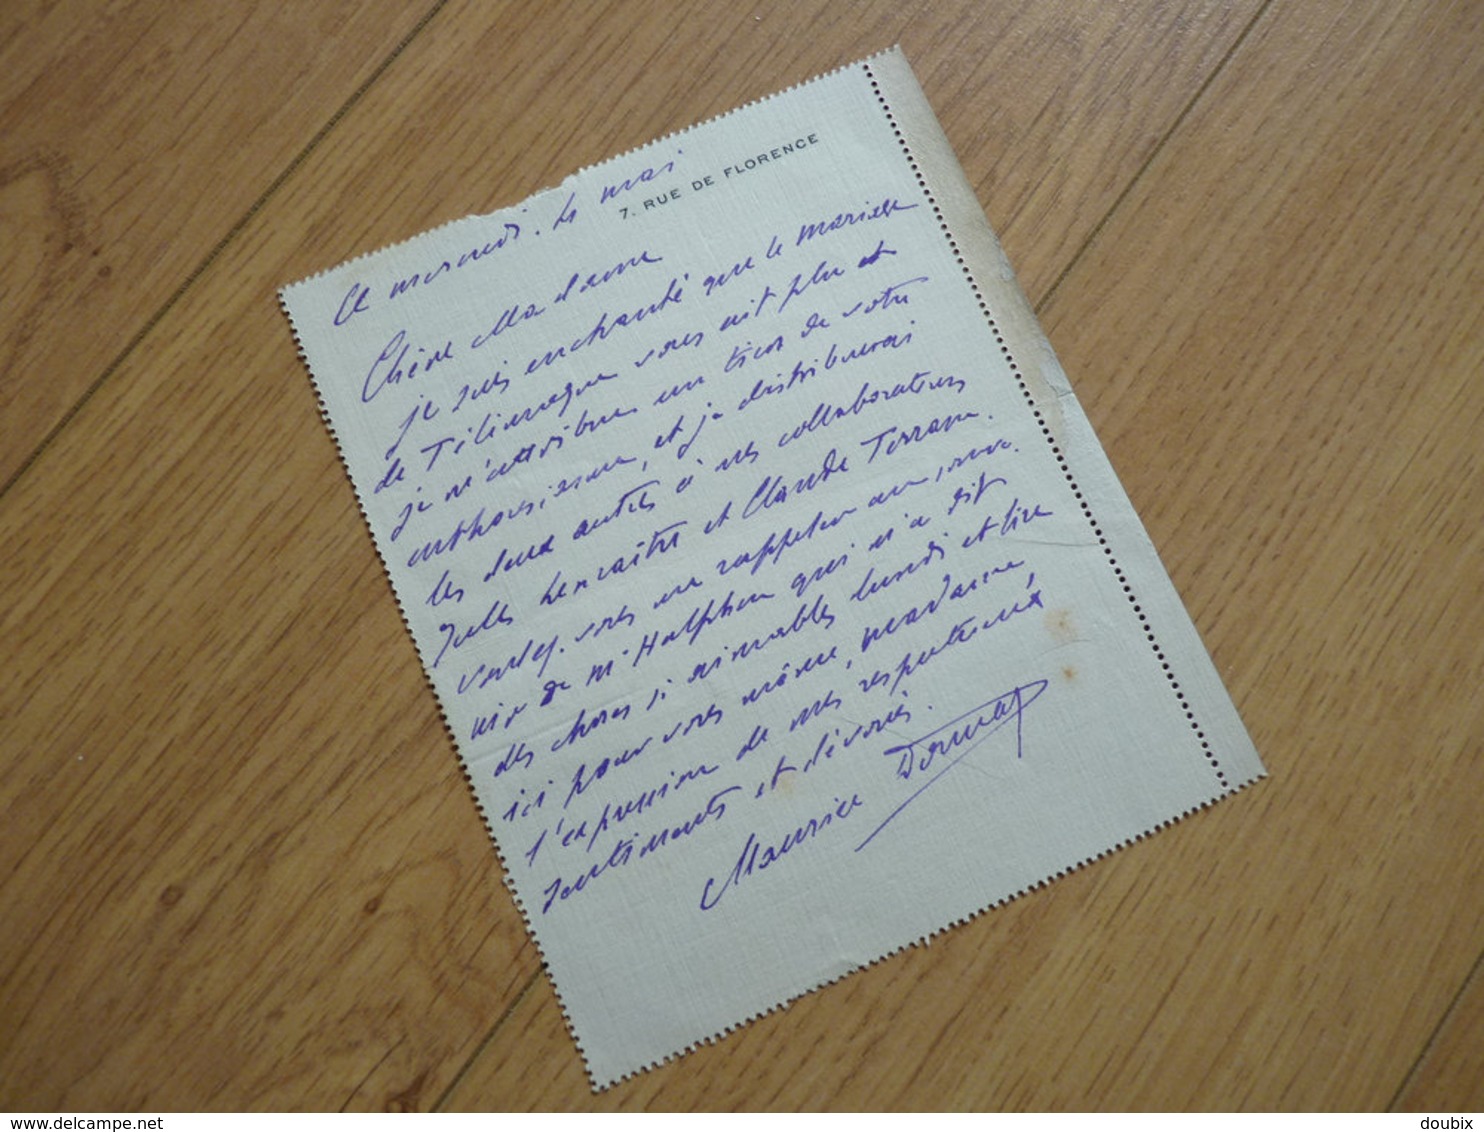 7. RUE DE FLORENCE
Ce mercredi. 4 mai
Chère Madame
je suis enchanté que le mariage
de Télémaque vous ait plu et
je m'attribue un tiers de votre
enthousiasme, et je distribuerai
les deux autres à mes collaborateurs
Jules Lemaître et Claude Terrasse.
Veuillez. vous me rappeler au souve.
nir de Mr Halphen qui m'a dit
des choses si aimables lundi et lire
ici pour vous même, madame,
l'expression de mes respectueux
sentiments et dévoués.
Maurice Donnay
delcampe.net
doubix